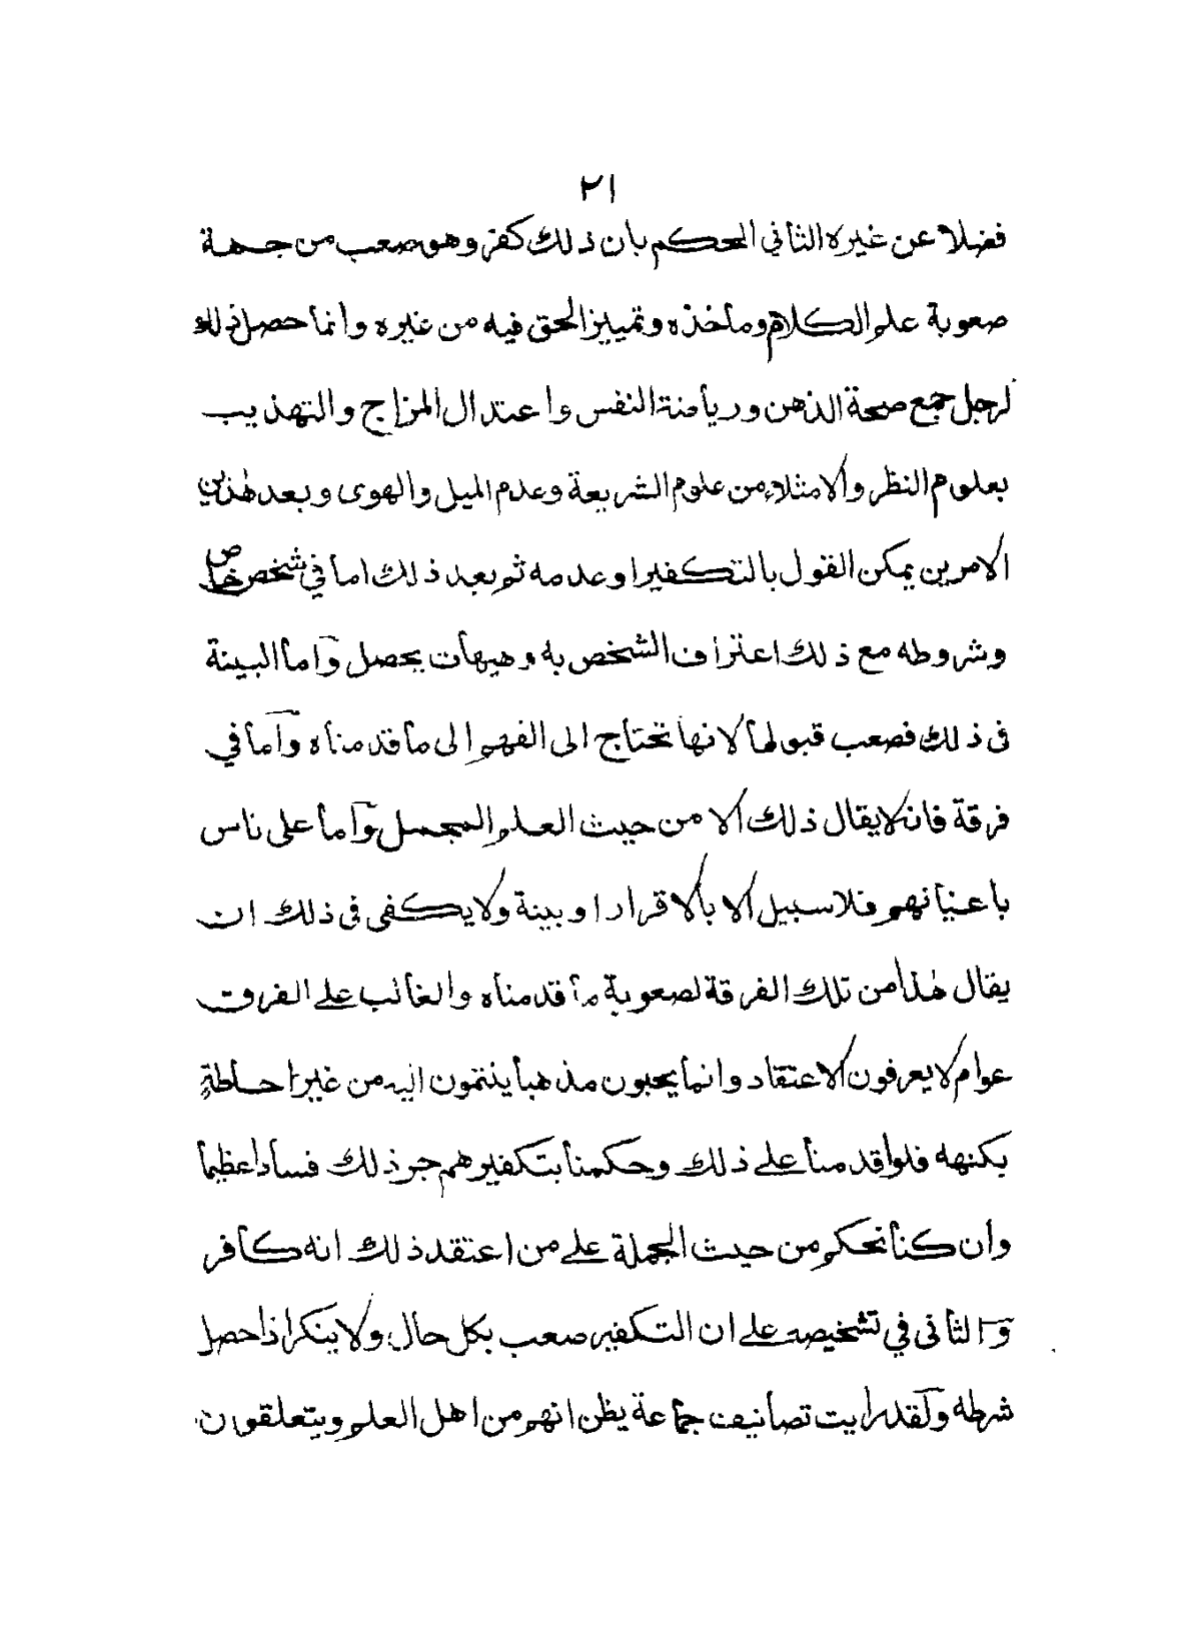 ٢١
فضلا عن غيره الثاني الحكم بان ذلك كفر وهو صعب من جهة
صعوبة علم الكلام ومأخذه وتمييز الحق فيه من غيره وانما حصل ذلك
لرجل جمع صحة الذهن ورياضة النفس واعتدال المزاج والتهذيب
بعلوم النظر والامتلاء من علوم الشريعة وعدم الميل والهوى وبعد هٰذين
الامرين يمكن القول بالتكفير اوعدمه ثم بعد ذلك اما في شخص خاص
وشروطه مع ذلك اعتراف الشخص به وهيهات يحصل وأما البينة
في ذلك فصعب قبولها لانها تحتاج الى الفهم الى ما قدمناه وأما في
فرقة فانه لايقال ذلك الا من حيث العلم المجمل وأما على ناس
باعيانهم فلاسبيل الا بالاقرار او بينة ولايكفى في ذلك ان
يقال هٰذا من تلك الفرقة لصعوبة ما قدمناه والغالب على الفرق
عوام لايعرفون الاعتقاد وانما يحبون مذهبا ينتمون اليه من غير احاطة
بكنهه فلواقدمنا على ذلك وحكمنا بتكفيرهم جر ذلك فسادا عظيما
وان كنا نحكم من حيث الجملة على من اعتقد ذلك انه كافر
والثانى في تشخيصه على ان التكفير صعب بكل حال ولاينكر اذا حصل
شرطه ولقد رايت تصانيف جماعة يظن انهم من اهل العلم ويتعلقون